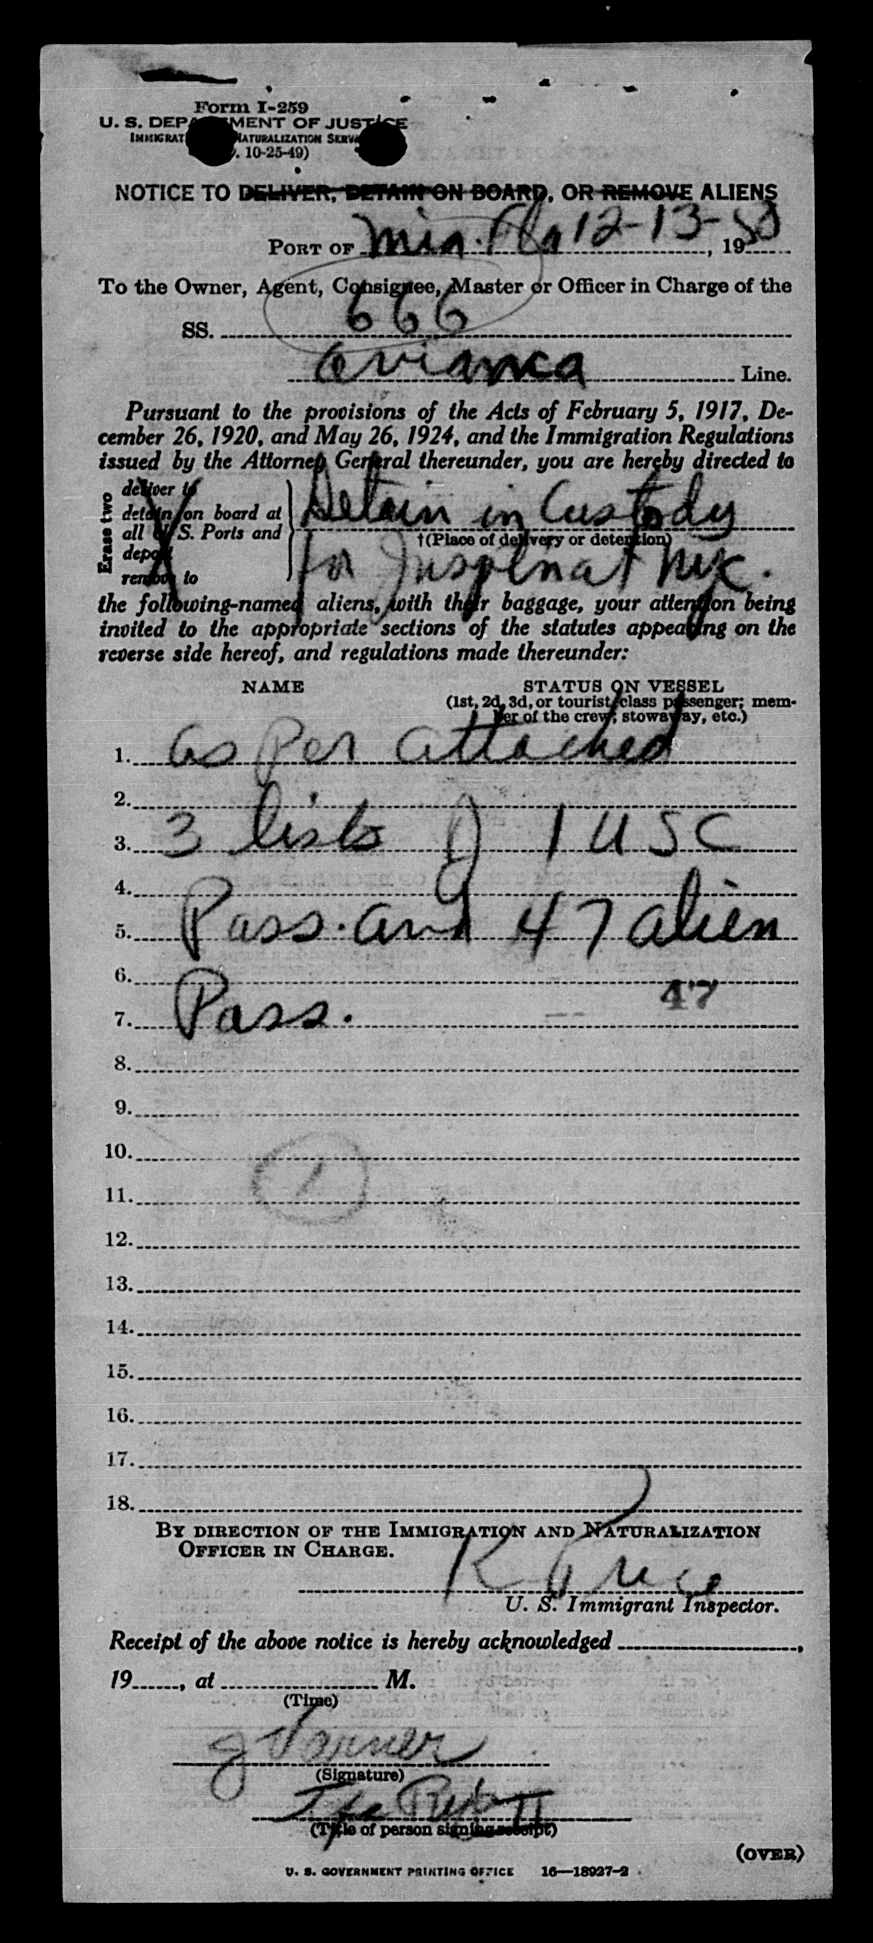 Form I-259
U. S. DEPARTMENT OF JUSTICE
IMMIGRAT NATURALIZATION SERV
. 10-25-49)
NOTICE TO DELIVER, DETAIN ON BOARD, OR REMOVE ALIENS
PORT OF Mia. Fla 12-13-, 1950
To the Owner, Agent, Consignee, Master or Officer in Charge of the
SS. 666
Avianca Line.
Pursuant to the provisions of the Acts of February 5, 1917, De-
cember 26, 1920, and May 26, 1924, and the Immigration Regulations
issued by the Attorney General thereunder, you are hereby directed to
Erase two
deliver to
detain on board at
all U. S. Ports and
deport
remove to
Detain in Custody
†(Place of delivery or detention)
for Inspln at NYC.
the following-named aliens, with their baggage, your attention being
invited to the appropriate sections of the statutes appearing on the
reverse side hereof, and regulations made thereunder:
NAME STATUS ON VESSEL
(1st, 2d, 3d, or tourist class passenger; mem-
ber of the crew, stowaway, etc.)
1. as Per attached
2.
3. 3 lists of 1 USC
4.
5. Pass. and 47 alien
6.
7. Pass. 47
8.
9.
10.
11. 1
12.
13.
14.
15.
16.
17.
18.
BY DIRECTION OF THE IMMIGRATION AND NATURALIZATION
OFFICER IN CHARGE.
R Price
U. S. Immigrant Inspector.
Receipt of the above notice is hereby acknowledged ,
19 , at M.
(Time)
J Varner
(Signature)
(Title of person signing receipt)
(OVER)
U. S. GOVERNMENT PRINTING OFFICE 16—18927-2